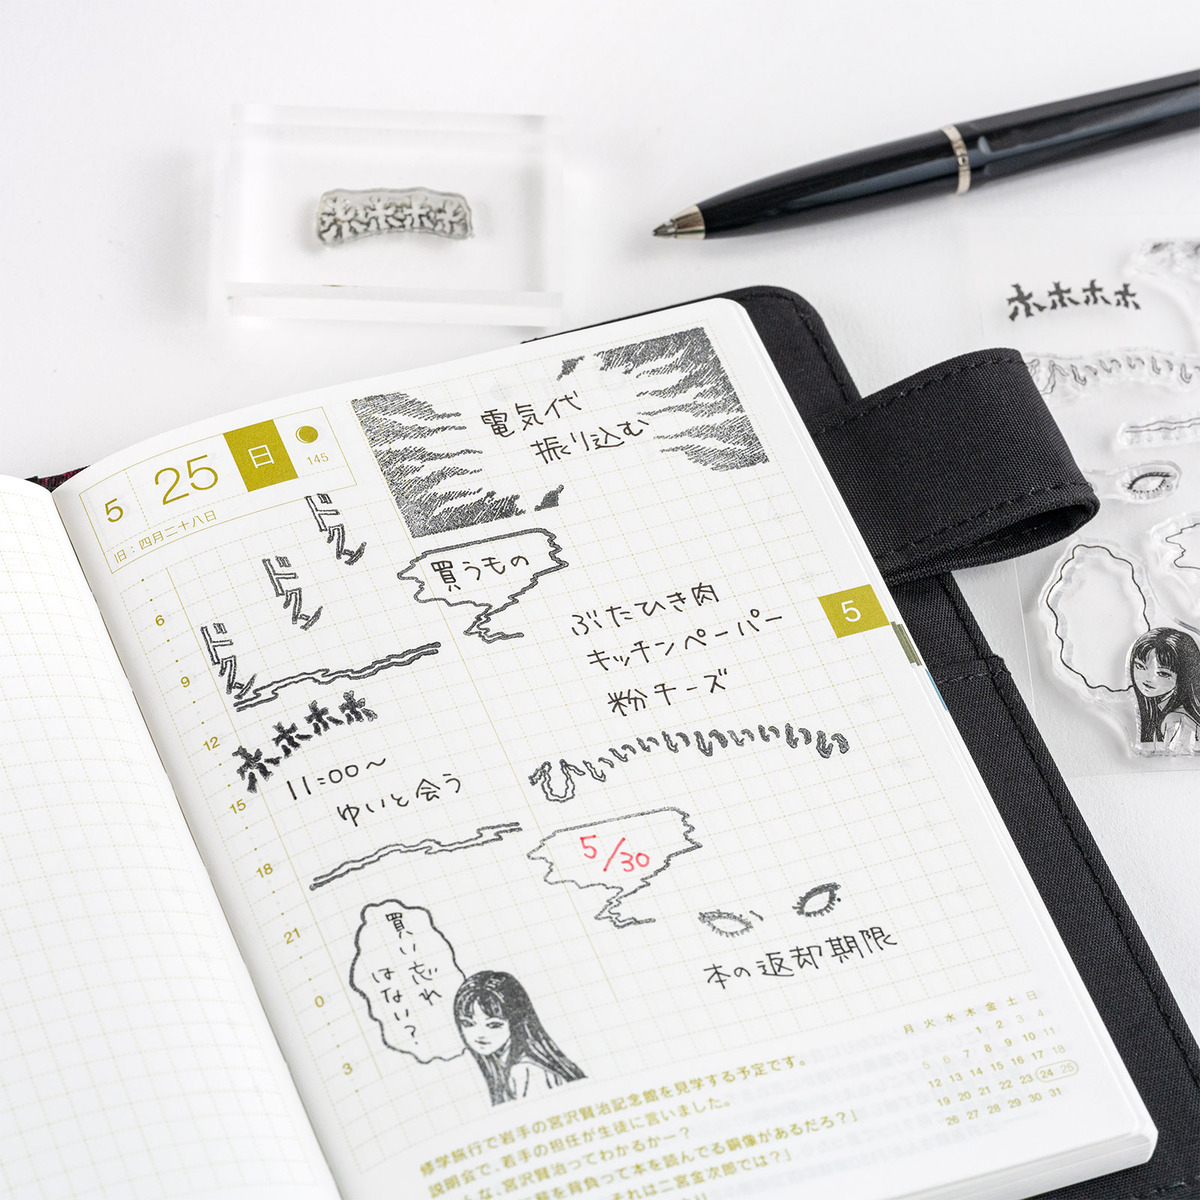 5 25 日
145
旧：四月二十八日
電気代
振り込む
ドクン
ドクン
ドクン
買うもの
ぶたひき肉
キッチンペーパー
粉チーズ
ホホホホ
11:00〜
ゆいと会う
ひいいいいいいいいい
5/30
本の返却期限
買い忘れ
はない？
6
9
12
15
18
21
0
3
5
月 火 水 木 金 土 日
1 2 3 4
5 6 7 8 9 10 11
12 13 14 15 16 17 18
19 20 21 22 23 24 25
26 27 28 29 30 31
修学旅行で岩手の宮沢賢治記念館を見学する予定です。
説明会で、若手の担任が生徒に言いました。
んな、宮沢賢治ってわかるかー？
を背負って本を読んでる銅像があるだろ？」
それは二宮金次郎では？」
ホホホホ